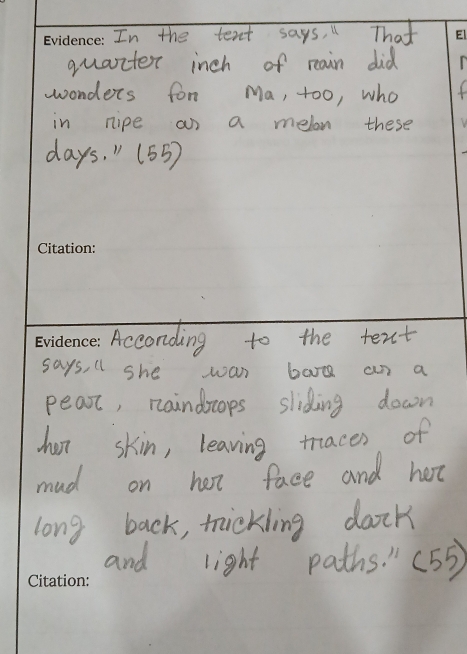 Evidence: In the text says," That
quarter inch of rain did
wonders for Ma, too, who
in ripe as a melon these
days." (55)
Citation:
Evidence: According to the text
says," she was bare as a
pear, raindrops sliding down
her skin, leaving traces of
mud on her face and her
long back, trickling dark
and light paths." (55)
Citation:
El